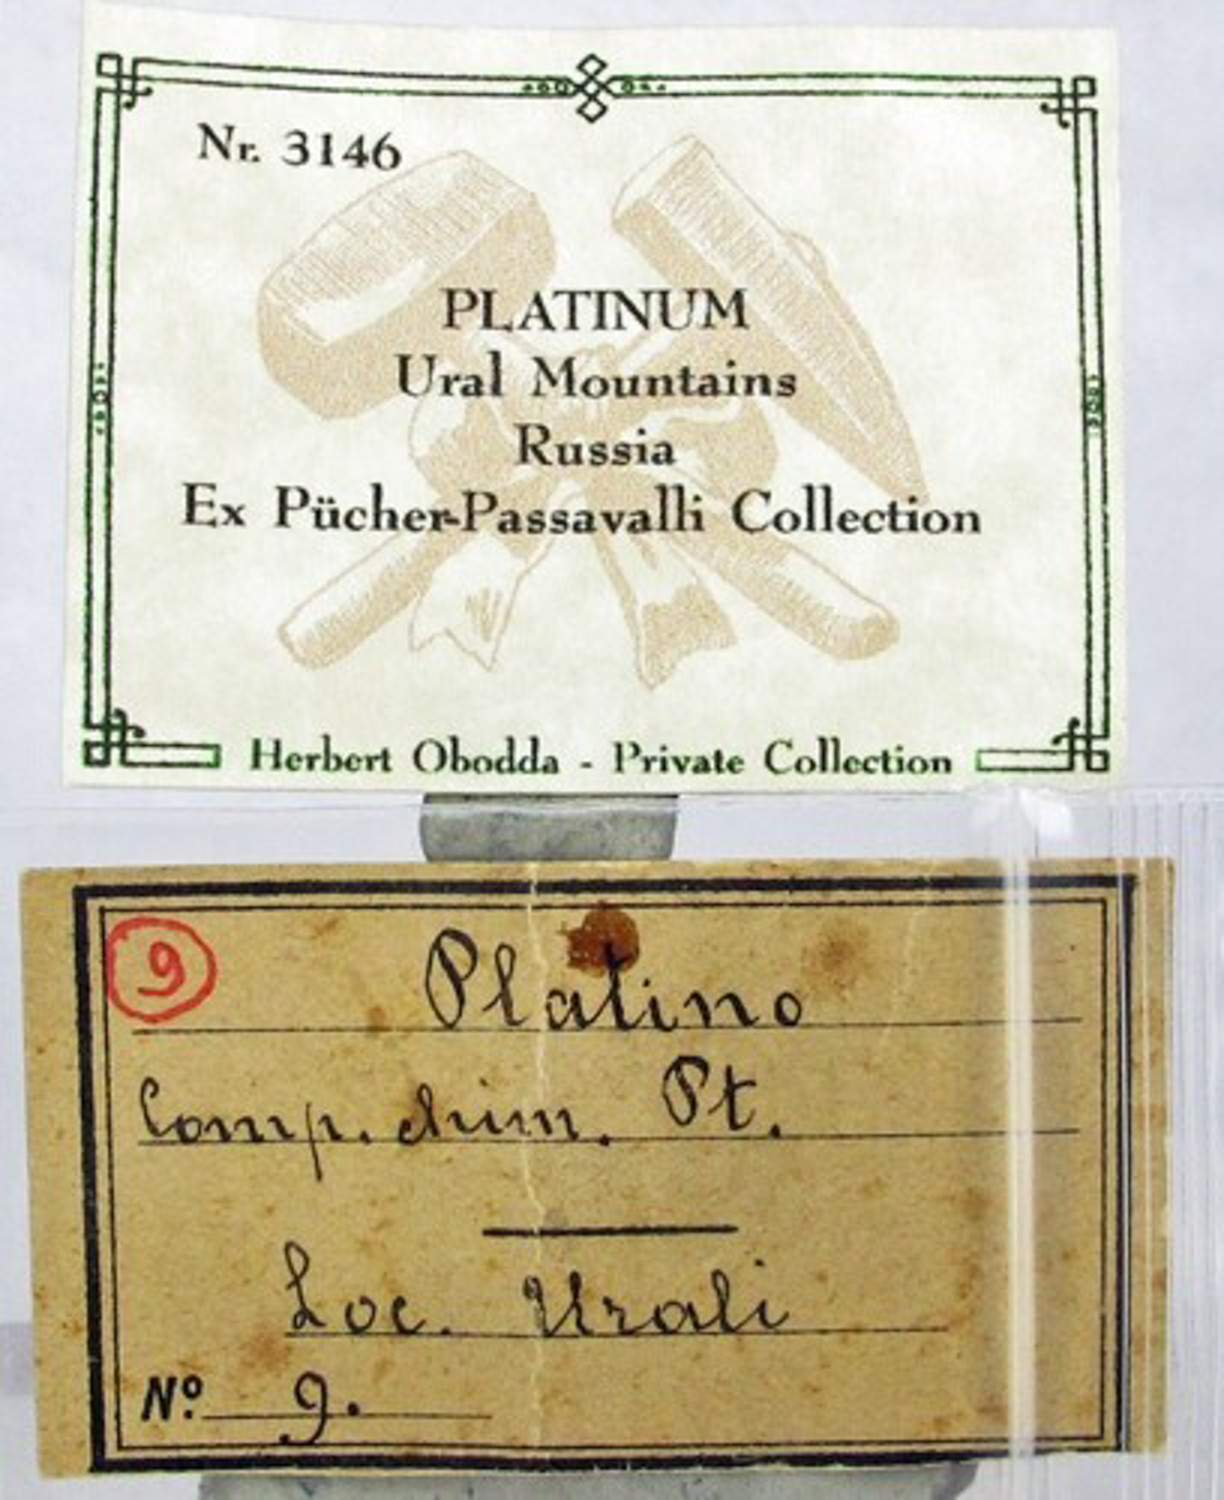 Nr. 3146
PLATINUM
Ural Mountains
Russia
Ex Pücher-Passavalli Collection
Herbert Obodda - Private Collection
9
Platino
Comp. chim. Pt.
Loc. Urali
Nº. 9.